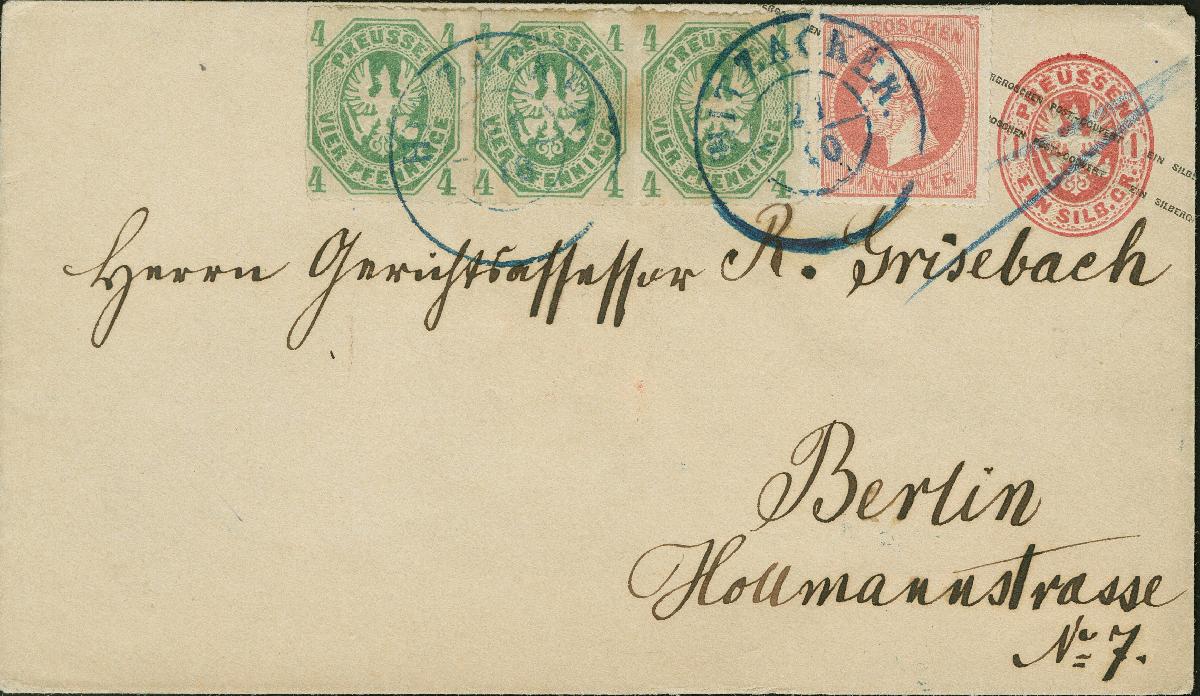 4 PREUSSEN 4
4 VIER PFENNINGE 4
4 PREUSSEN 4
4 VIER PFENNINGE 4
4 PREUSSEN 4
4 VIER PFENNINGE 4
GROSCHEN
HANNOVER
HITZACKER.
PREUSSEN
1 1
EIN SILB.GR.
Herrn Gerichtsassessor R. Grisebach
Berlin
Hollmannstrasse
No 7.